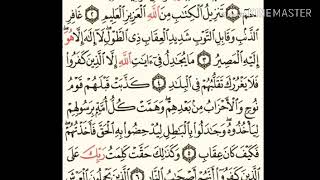 KINEMASTER
حمٓ ١ تَنزِيلُ ٱلْكِتَٰبِ مِنَ ٱللَّهِ ٱلْعَزِيزِ ٱلْعَلِيمِ ٢ غَافِرِ
ٱلذَّنۢبِ وَقَابِلِ ٱلتَّوْبِ شَدِيدِ ٱلْعِقَابِ ذِى ٱلطَّوْلِ لَآ إِلَٰهَ إِلَّا هُوَ
إِلَيْهِ ٱلْمَصِيرُ ٣ مَا يُجَٰدِلُ فِىٓ ءَايَٰتِ ٱللَّهِ إِلَّا ٱلَّذِينَ كَفَرُوا۟
فَلَا يَغْرُرْكَ تَقَلُّبُهُمْ فِى ٱلْبِلَٰدِ ٤ كَذَّبَتْ قَبْلَهُمْ قَوْمُ
نُوحٍ وَٱلْأَحْزَابُ مِنۢ بَعْدِهِمْ وَهَمَّتْ كُلُّ أُمَّةٍۭ بِرَسُولِهِمْ
لِيَأْخُذُوهُ وَجَٰدَلُوا۟ بِٱلْبَٰطِلِ لِيُدْحِضُوا۟ بِهِ ٱلْحَقَّ فَأَخَذْتُهُمْ
فَكَيْفَ كَانَ عِقَابِ ٥ وَكَذَٰلِكَ حَقَّتْ كَلِمَتُ رَبِّكَ عَلَى
ٱلَّذِينَ كَفَرُوٓا۟ أَنَّهُمْ أَصْحَٰبُ ٱلنَّارِ ٦ ٱلَّذِينَ يَحْمِلُونَ ٱلْعَرْشَ